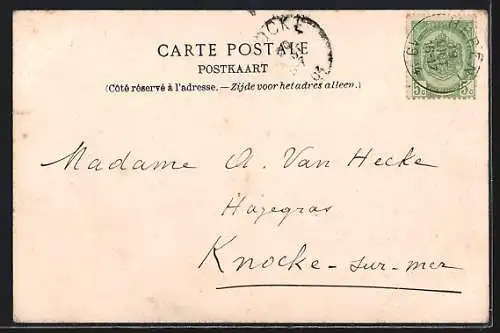 OCKE
CARTE POSTALE
POSTKAART
(Côté réservé à l'adresse. — Zijde voor het adres alleen.)
5c 5c
Madame A. Van Hecke
Hazegras
Knocke-sur-mer